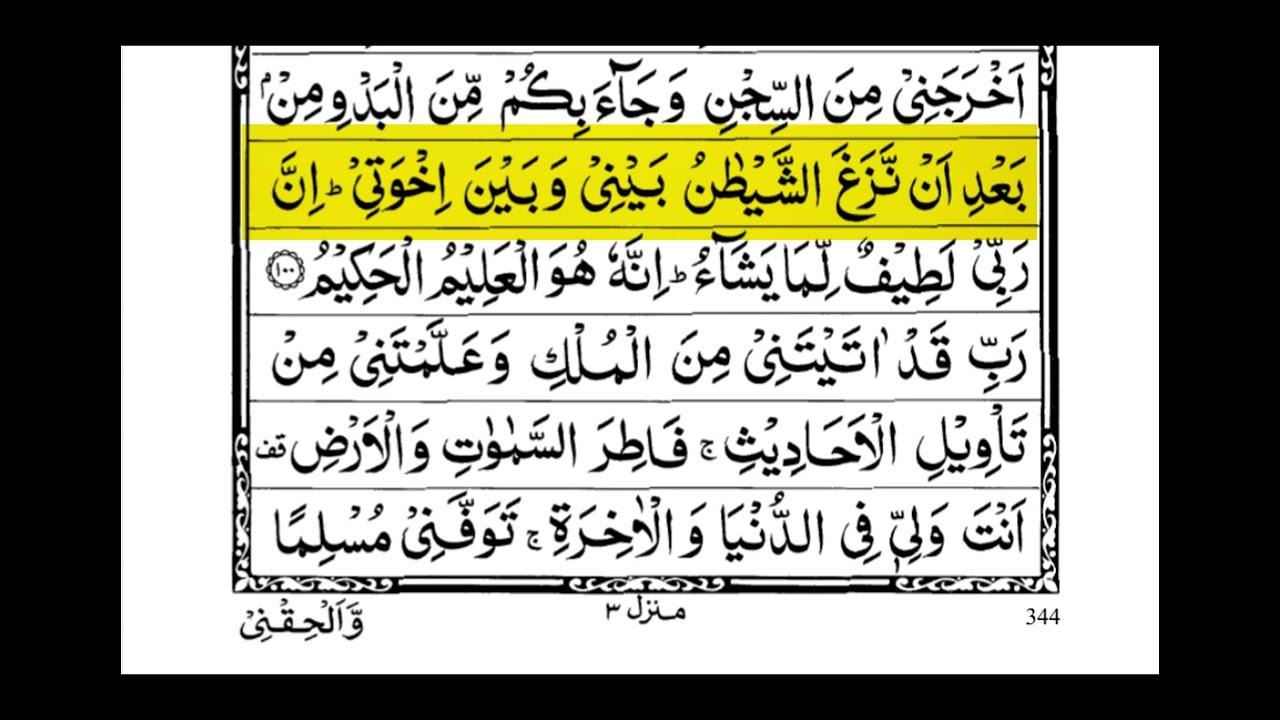 اَخْرَجَنِىْ مِنَ السِّجْنِ وَجَآءَ بِكُمْ مِّنَ الْبَدْوِ مِنْۢ
بَعْدِ اَنْ نَّزَغَ الشَّيْطٰنُ بَيْنِىْ وَبَيْنَ اِخْوَتِىْ ؕ اِنَّ
رَبِّىْ لَطِيْفٌ لِّمَا يَشَآءُ ؕ اِنَّهٗ هُوَ الْعَلِيْمُ الْحَكِيْمُ ﴿۱۰۰﴾
رَبِّ قَدْ اٰتَيْتَنِىْ مِنَ الْمُلْكِ وَعَلَّمْتَنِىْ مِنْ
تَاْوِيْلِ الْاَحَادِيْثِ ۚ فَاطِرَ السَّمٰوٰتِ وَالْاَرْضِ قف
اَنْتَ وَلِىّٖ فِى الدُّنْيَا وَالْاٰخِرَةِ ۚ تَوَفَّنِىْ مُسْلِمًا
وَّاَلْحِقْنِىْ
منزل ۳
344